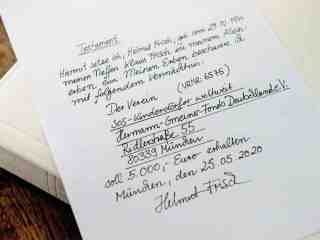 Testament
Hiermit setze ich, Helmut Frisch, geb. am 29.10.
meinen Neffen Klaus Frisch zu meinem Allein-
erben ein. Meinen Erben beschwere ich
mit folgendem Vermächtnis:
Der Verein (VRNR 6575)
SOS-Kinderdörfer weltweit
Hermann-Gmeiner-Fonds Deutschland e.V.
Ridlerstraße 55
80339 München
soll 5.000,- Euro erhalten
München, den 25.05.2020
Helmut Frisch